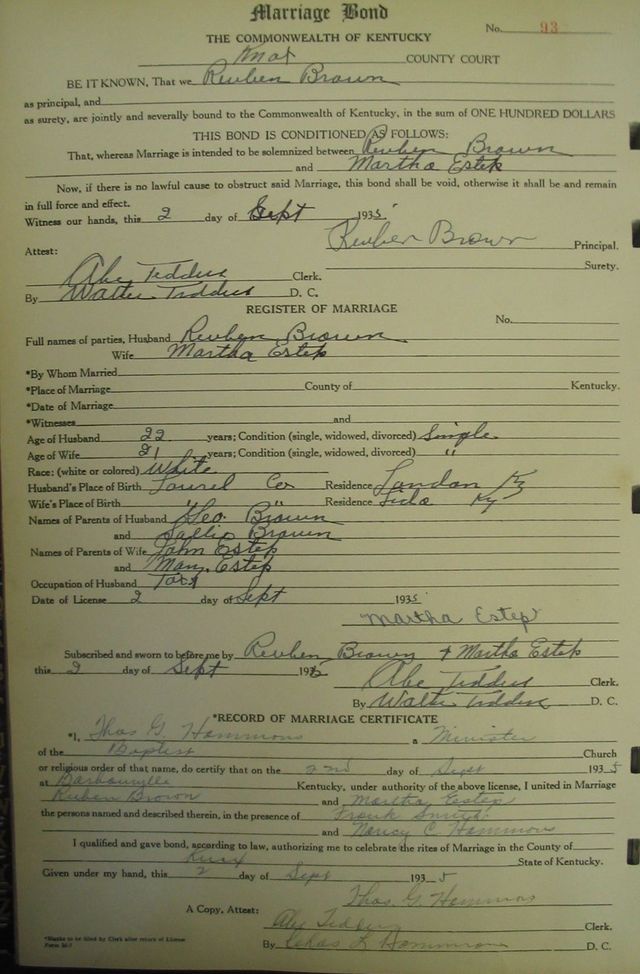 Marriage Bond
No. 93
THE COMMONWEALTH OF KENTUCKY
Knox COUNTY COURT
BE IT KNOWN, That we Reuben Brown
as principal, and
as surety, are jointly and severally bound to the Commonwealth of Kentucky, in the sum of ONE HUNDRED DOLLARS
THIS BOND IS CONDITIONED AS FOLLOWS:
That, whereas Marriage is intended to be solemnized between Reuben Brown
and Martha Estep
Now, if there is no lawful cause to obstruct said Marriage, this bond shall be void, otherwise it shall be and remain
in full force and effect.
Witness our hands, this 2 day of Sept 1935
Reuben Brown Principal.
Attest: Surety.
Abe Tedders Clerk.
By Walter Tedders D. C.
REGISTER OF MARRIAGE
No.
Full names of parties, Husband Reuben Brown
Wife Martha Estep
*By Whom Married
*Place of Marriage County of Kentucky.
*Date of Marriage
*Witnesses and
Age of Husband 22 years; Condition (single, widowed, divorced) Single
Age of Wife 21 years; Condition (single, widowed, divorced) "
Race: (white or colored) White
Husband's Place of Birth Laurel Co Residence London Ky
Wife's Place of Birth " " Residence Lida Ky
Names of Parents of Husband Geo. Brown
and Sallie Brown
Names of Parents of Wife John Estep
and Mary Estep
Occupation of Husband
Date of License 2 day of Sept 1935
Martha Estep
Subscribed and sworn to before me by Reuben Brown & Martha Estep
this 2 day of Sept 1935
Abe Tedders Clerk.
By Walter Tedders D. C.
*RECORD OF MARRIAGE CERTIFICATE
*I, Thos G. Hammons a Minister
of the Baptist Church
or religious order of that name, do certify that on the 2nd day of Sept 1935
at Barbourville Kentucky, under authority of the above license, I united in Marriage
Reuben Brown and Martha Estep
the persons named and described therein, in the presence of Frank Smith
and Nancy C. Hammons
I qualified and gave bond, according to law, authorizing me to celebrate the rites of Marriage in the County of
Knox State of Kentucky.
Given under my hand, this 2 day of Sept 1935
Thos G. Hammons
A Copy, Attest: Abe Tedders Clerk.
By Hammons D. C.
*Blanks to be filled by Clerk after return of License